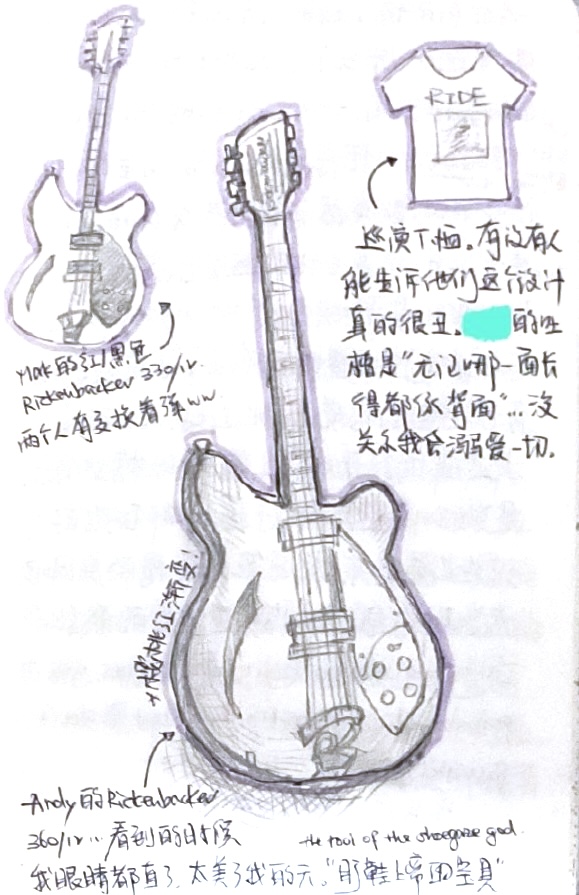 RIDE
巡演T恤。有没有人
能告诉他们这个设计
真的很丑。的吐
槽是"无论哪一面长
得都像背面"...没
关系我会溺爱一切.
Mark的红/黑色
Rickenbacker 330/12
两个人有交换着弹ww
+樱桃红渐变!
Andy的Rickenbacker
360/12...看到的时候
我眼睛都直了,太美了我的天."盯鞋上帝的宝具"
the tool of the shoegaze god.